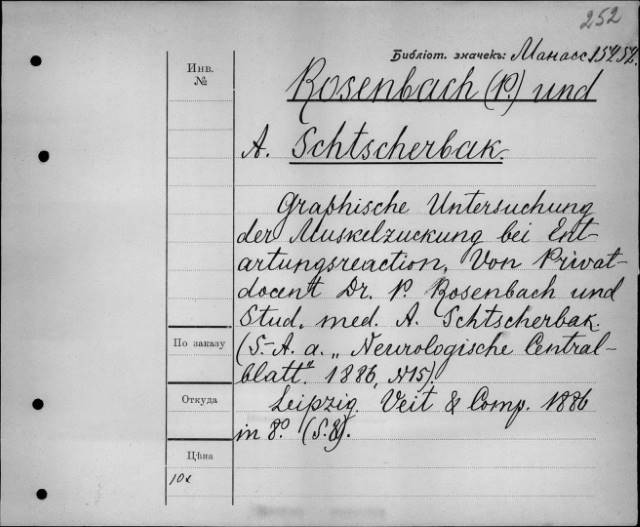 252
Библіот. значекъ: Манасс 15252.
Инв.
№
Rosenbach (P.) und
A. Schtscherbak.
Graphische Untersuchung
der Muskelzuckung bei Ent-
artungsreaction. Von Privat-
docent Dr. P. Rosenbach und
Stud. med. A. Schtscherbak.
(S.-A. a. „Neurologische Central-
blatt". 1886, N15).
Leipzig. Veit & Comp. 1886
in 8º. (S.8).
По заказу
Откуда
Цѣна
10к